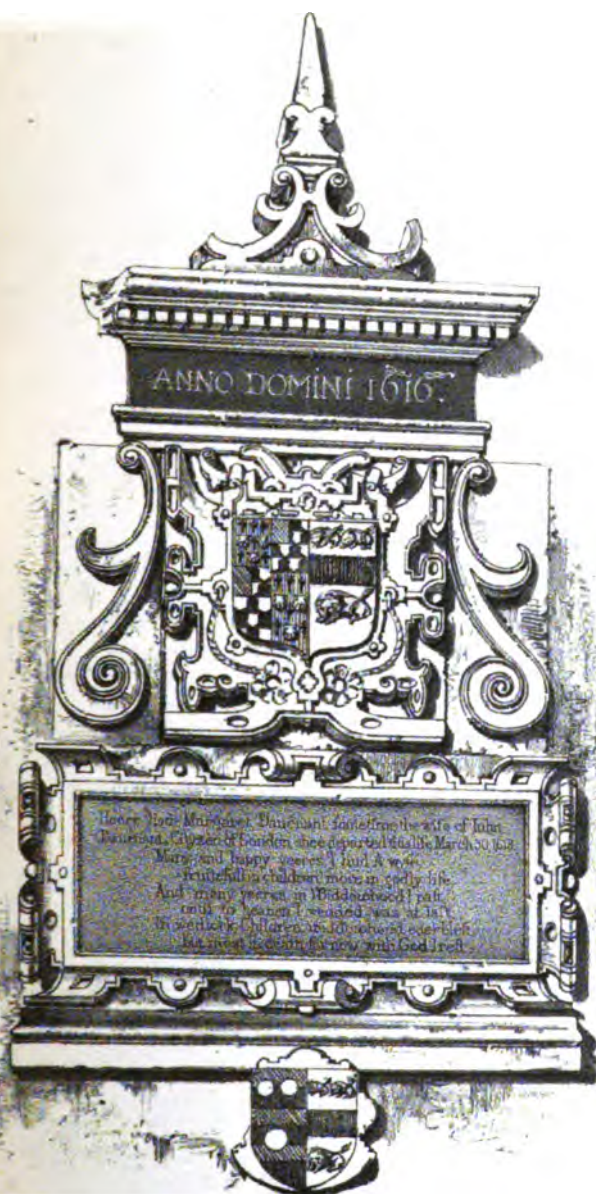 ANNO DOMINI 1616.
Heere lieth Margaret Dauenant sometime the wife of John
Dauenant Citizen of London shee departed this life March 30 1613
Many and happy yeeres I liud A wife
fruitefull in children more in godly life
And many yeeres in Widdowhood I past
to heauen I was at last
In wedlock Children
but most in death for now with God I rest